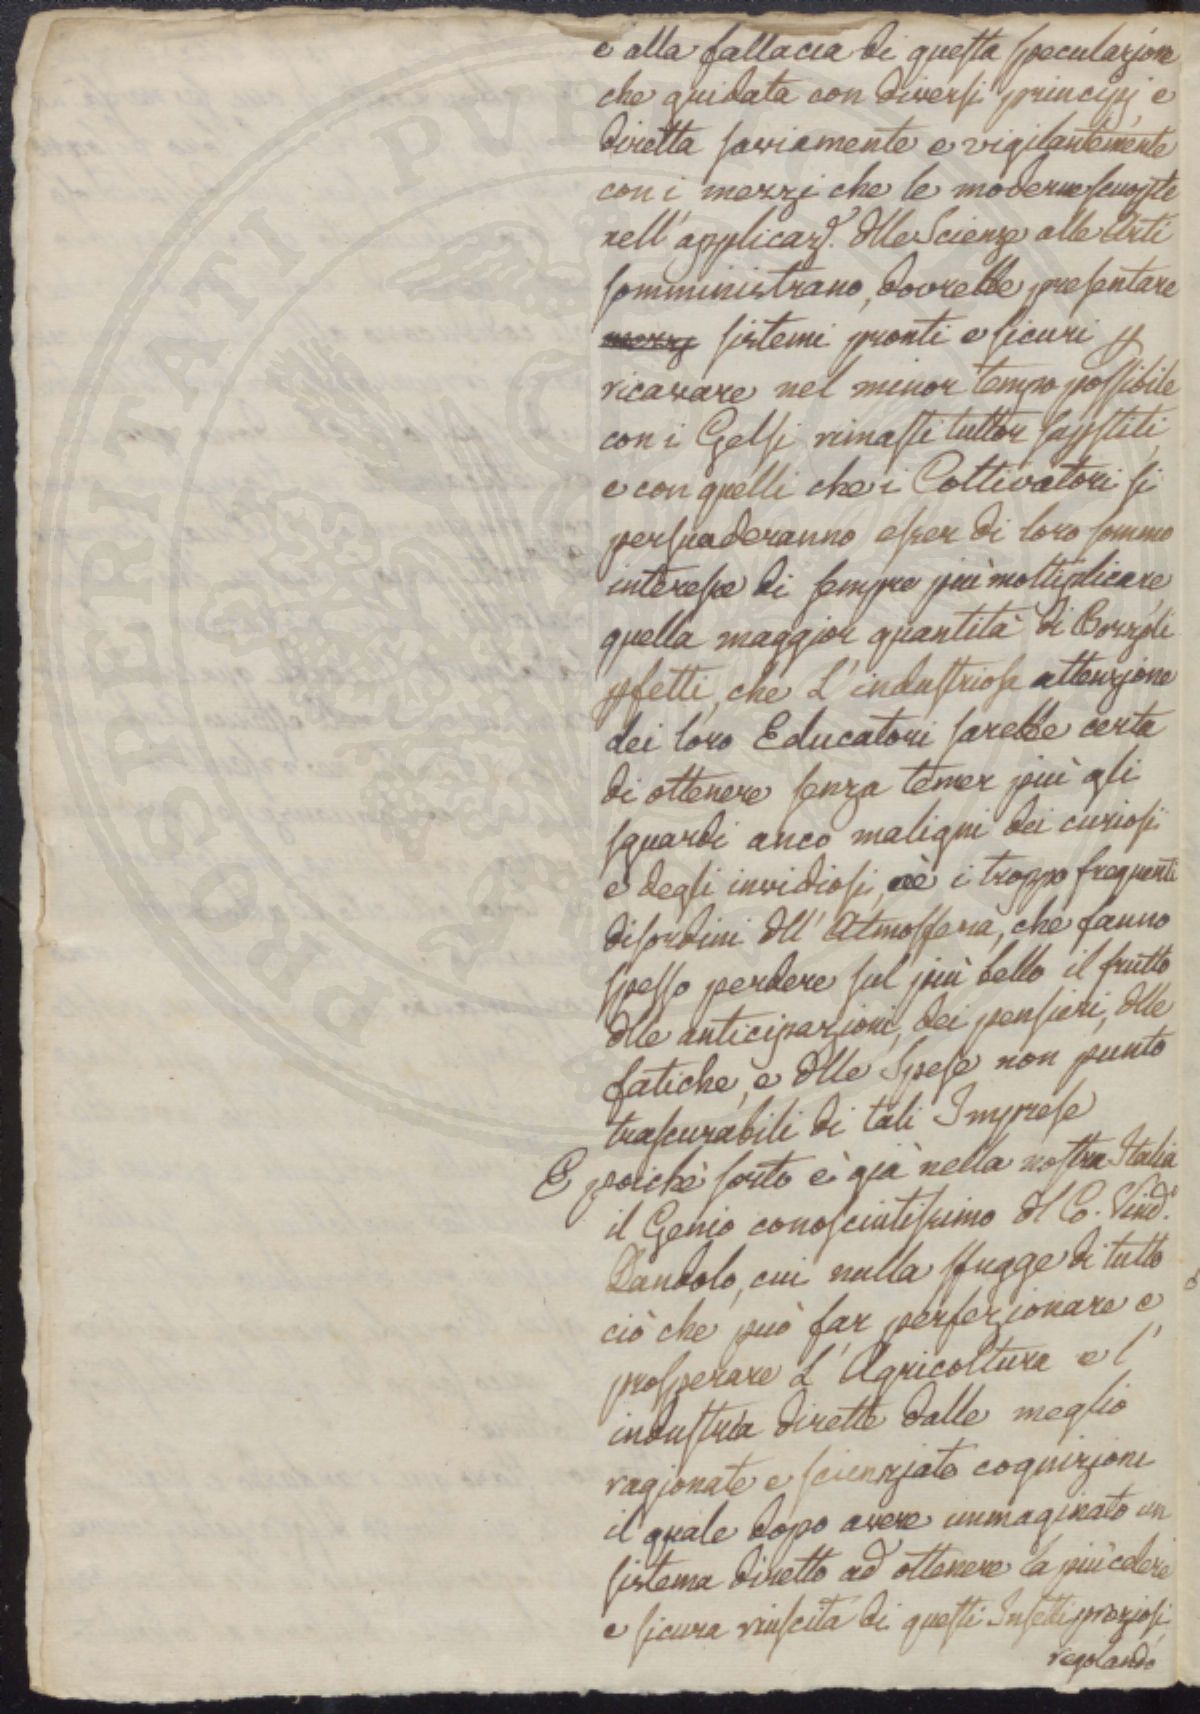 e alla fallacia di questa speculazione
che guidata con diversi principj e
diretta saviamente e vigilantemente
con i mezzi che le moderne scuoperte
nell'applicaz.e dlle Scienze alle Arti
somministrano, dovrebbe presentare
mezzj sistemi pronti e sicuri p
ricavare nel minor tempo possibile
con i Gelsi rimasti tuttor sussistiti,
e con quelli che i Coltivatori si
persuaderanno esser di loro sommo
interesse di sempre più moltiplicare,
quella maggior quantità di Bozzoli
pfetti, che L'industriosa attenzione
dei loro Educatori sarebbe certa
di ottenere senza temer più gli
sguardi anco maligni dei curiosi
e degli invidiosi, nè i troppo frequenti
disordini dll' Atmosfera, che fanno
spesso perdere sul più bello il frutto
dlle anticipazioni, dei pensieri, dlle
fatiche, e dlle Spese non punto
trascurabili di tali Imprese
E poichè sorto è già nella nostra Italia
il Genio conosciutissimo dl Co. Vind.o
Dandolo, cui nulla sfugge di tutto
ciò che può far perfezionare e
prosperare L' Agricoltura e l'
industria dirette dalle meglio
ragionate e scienziate cognizioni
il quale dopo avere immaginato un
sistema diretto ad ottenere la più celere
e sicura riuscita di questi Insetti preziosi
regolando
PROSPERITATI PVBLICAE